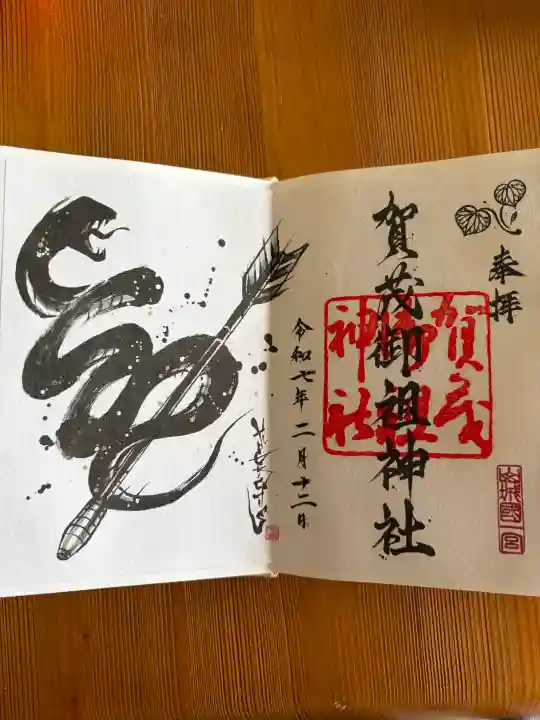 奉拝
賀茂御祖神社
賀茂
御祖
神社
山城國一宮
令和七年二月十二日